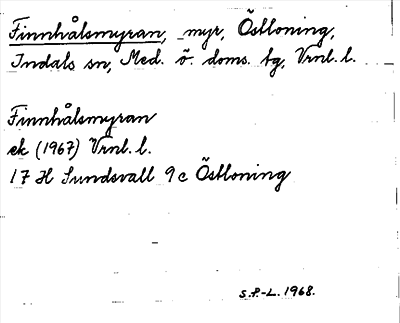 Finnhålsmyran, myr, Östloning,
Indals sn, Med. ö. doms. tg, Vrnl. l.
Finnhålsmyran
ek (1967) Vrnl. l.
17 H Sundsvall 9 c Östloning
S.P.-L. 1968.